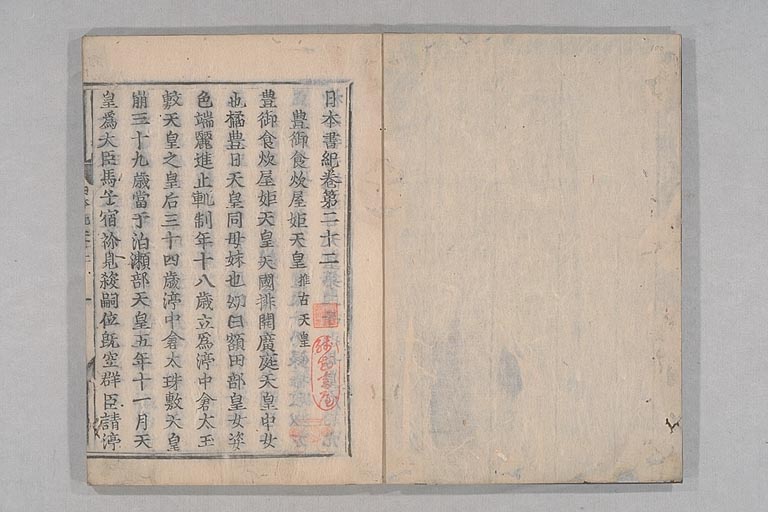 日本書紀卷第二十二
豊御食炊屋姫天皇 推古天皇
豊御食炊屋姫天皇天國排開廣庭天皇中女
也橘豊日天皇同母妹也幼曰額田部皇女姿
色端麗進止軌制年十八歳立爲渟中倉太玉
敷天皇之皇后三十四歳渟中倉太珠敷天皇
崩三十九歳當于泊瀬部天皇五年十一月天
皇爲大臣馬子宿祢見殺嗣位既空群臣請渟